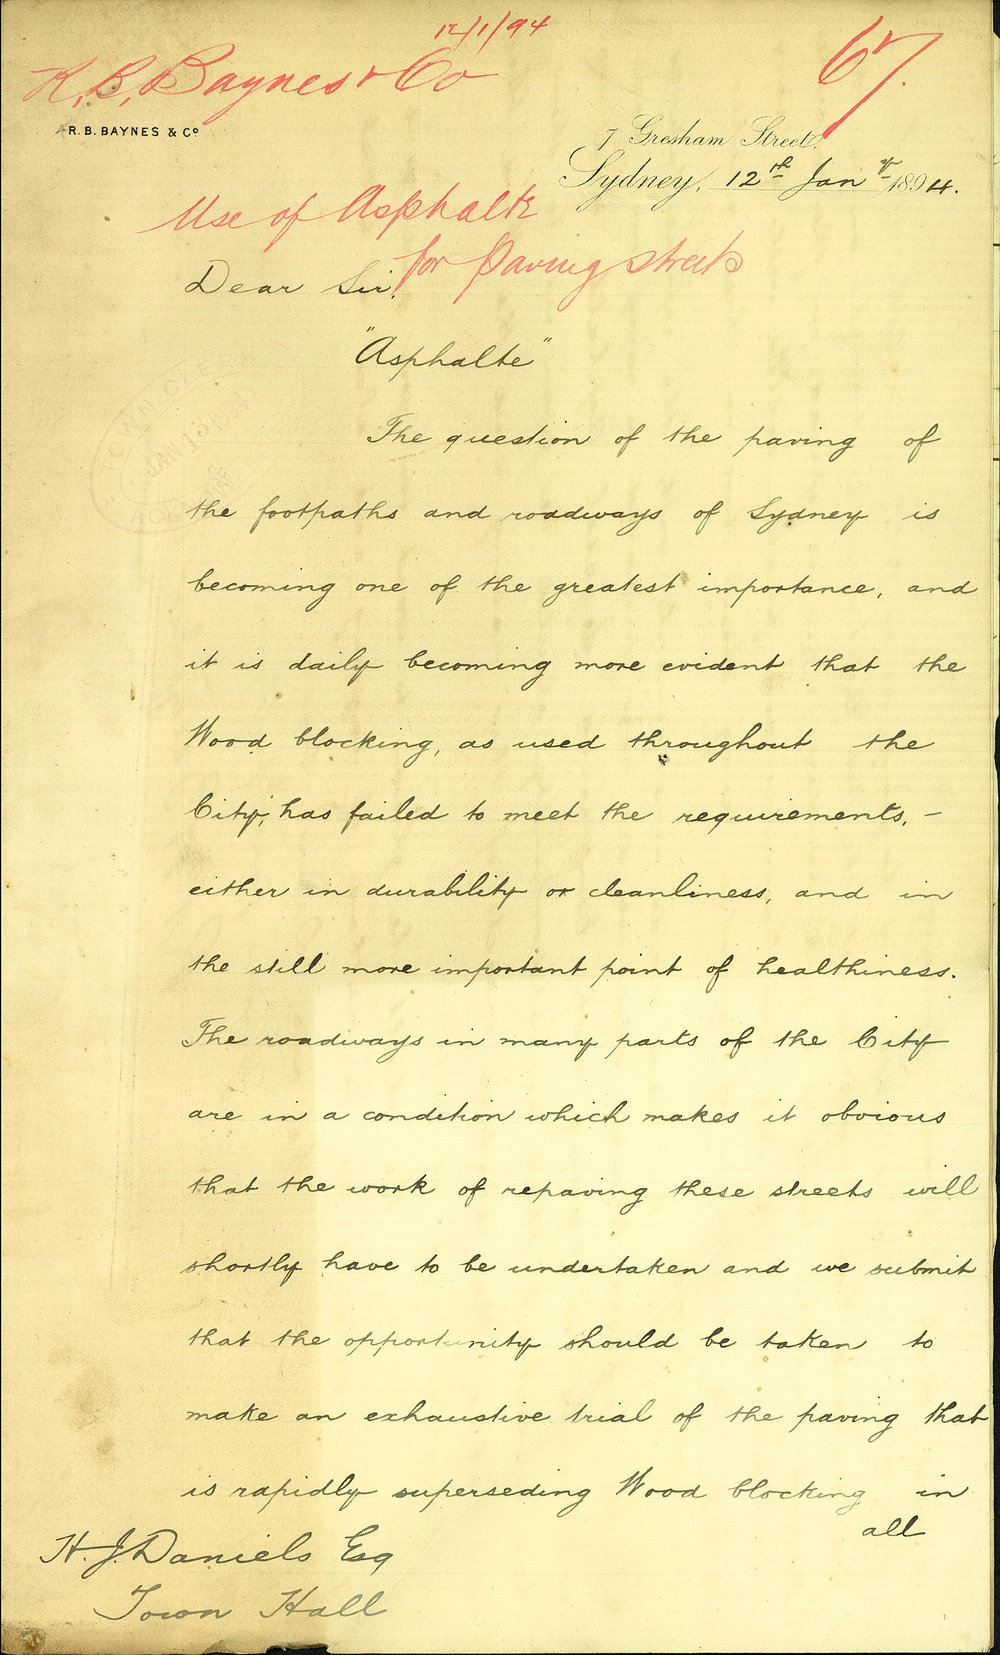 12/1/94
R. B. Baynes & Co
67.
R. B. BAYNES & Co
7 Gresham Street,
Sydney, 12th Jany 1894.
Use of Asphalte
for Paving streets
Dear Sir,
"Asphalte"
The question of the paving of
the footpaths and roadways of Sydney is
becoming one of the greatest importance, and
it is daily becoming more evident that the
Wood blocking, as used throughout the
City, has failed to meet the requirements, –
either in durability or cleanliness, and in
the still more important point of healthiness.
The roadways in many parts of the City
are in a condition which makes it obvious
that the work of repaving these streets will
shortly have to be undertaken and we submit
that the opportunity should be taken to
make an exhaustive trial of the paving that
is rapidly superseding Wood blocking in
all
H. J. Daniels Esq
Town Hall
TOWN CLE
JAN 13 1894